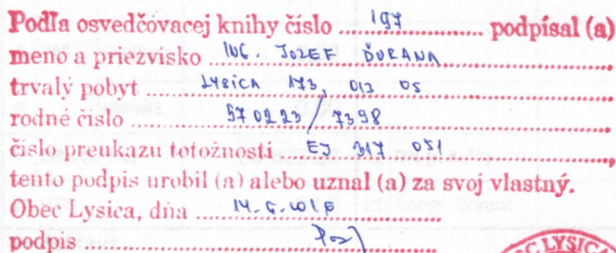 Podľa osvedčovacej knihy číslo 197 podpísal (a)
meno a priezvisko ING. JOZEF ĎURANA
trvalý pobyt LYSICA 173, 013 05
rodné číslo 570223/7398
číslo preukazu totožnosti EJ 317 051,
tento podpis urobil (a) alebo uznal (a) za svoj vlastný.
Obec Lysica, dňa
podpis
EC LYSICA